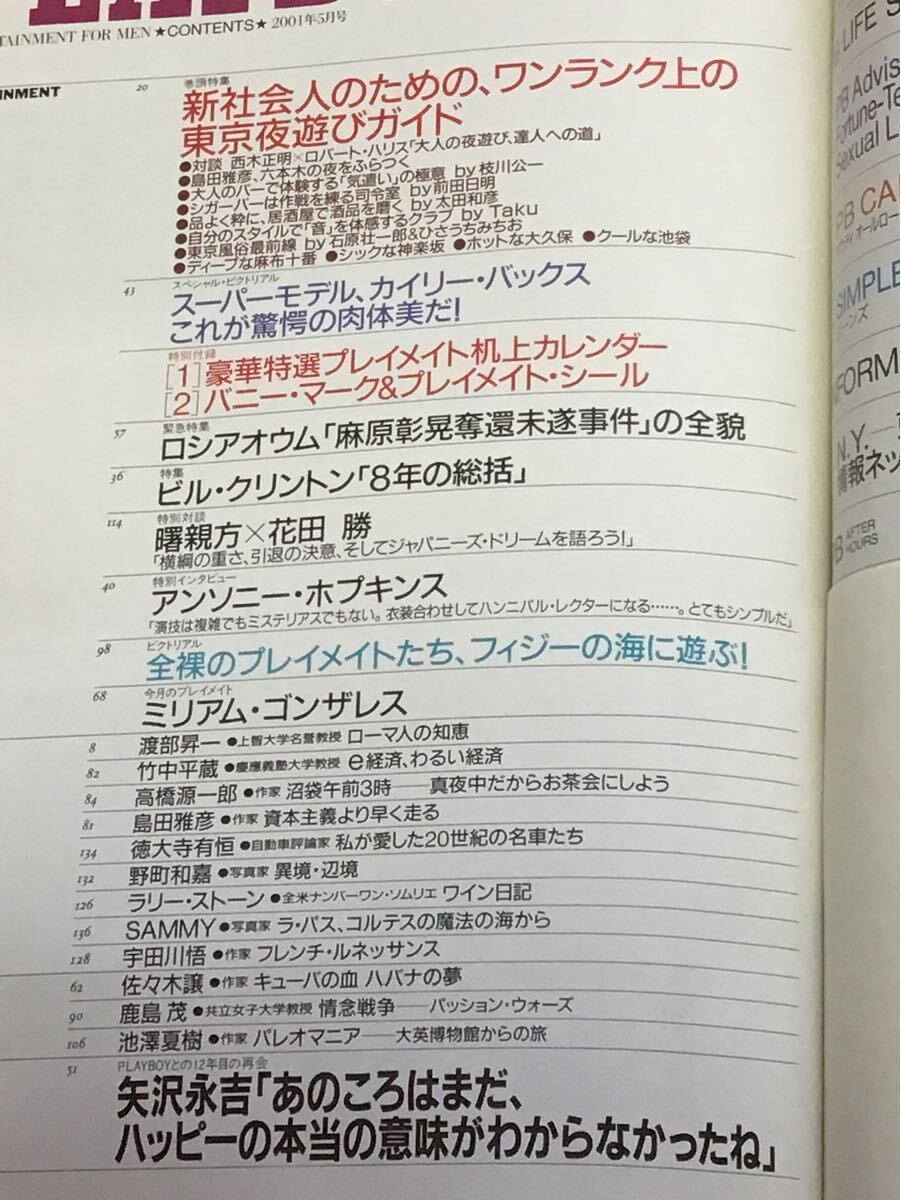 TAINMENT FOR MEN ★CONTENTS★ 2001年5月号
INMENT
20
巻頭特集
新社会人のための、ワンランク上の
東京夜遊びガイド
●対談 西木正明×ロバート・ハリス「大人の夜遊び、達人への道」
●島田雅彦、六本木の夜をふらつく
●大人のバーで体験する「気遣い」の極意 by 枝川公一
●シガーバーは作戦を練る司令室 by 前田日明
●品よく粋に、居酒屋で酒品を磨く by 太田和彦
●自分のスタイルで「音」を体感するクラブ by Taku
●東京風俗最前線 by 石原壮一郎&ひさうちみちお
●ディープな麻布十番 ●シックな神楽坂 ●ホットな大久保 ●クールな池袋
43
スペシャル・ピクトリアル
スーパーモデル、カイリー・バックス
これが驚愕の肉体美だ!
特別付録
[1]豪華特選プレイメイト机上カレンダー
[2]バニー・マーク&プレイメイト・シール
57
緊急特集
ロシアオウム「麻原彰晃奪還未遂事件」の全貌
36
特集
ビル・クリントン「8年の総括」
114
特別対談
曙親方×花田 勝
「横綱の重さ、引退の決意、そしてジャパニーズ・ドリームを語ろう!」
40
特別インタビュー
アンソニー・ホプキンス
「演技は複雑でもミステリアスでもない。衣装合わせしてハンニバル・レクターになる……。とてもシンプルだ」
98
ピクトリアル
全裸のプレイメイトたち、フィジーの海に遊ぶ!
68
今月のプレイメイト
ミリアム・ゴンザレス
8 渡部昇一 ●上智大学名誉教授 ローマ人の知恵
82 竹中平蔵 ●慶應義塾大学教授 e経済、わるい経済
84 高橋源一郎 ●作家 沼袋午前3時——真夜中だからお茶会にしよう
81 島田雅彦 ●作家 資本主義より早く走る
134 徳大寺有恒 ●自動車評論家 私が愛した20世紀の名車たち
132 野町和嘉 ●写真家 異境・辺境
126 ラリー・ストーン ●全米ナンバーワン・ソムリエ ワイン日記
136 SAMMY ●写真家 ラ・パス、コルテスの魔法の海から
128 宇田川悟 ●作家 フレンチ・ルネッサンス
62 佐々木譲 ●作家 キューバの血 ハバナの夢
90 鹿島 茂 ●共立女子大学教授 情念戦争——パッション・ウォーズ
106 池澤夏樹 ●作家 パレオマニア——大英博物館からの旅
51
PLAYBOYとの12年目の再会
矢沢永吉「あのころはまだ、
ハッピーの本当の意味がわからなかったね」
LIFE S
PB Advis
Fortune-Te
Sexual L
PB CA
SIMPLE
ーンズ
FORM
N.Y.—
情報ネッ
AFTER
HOURS